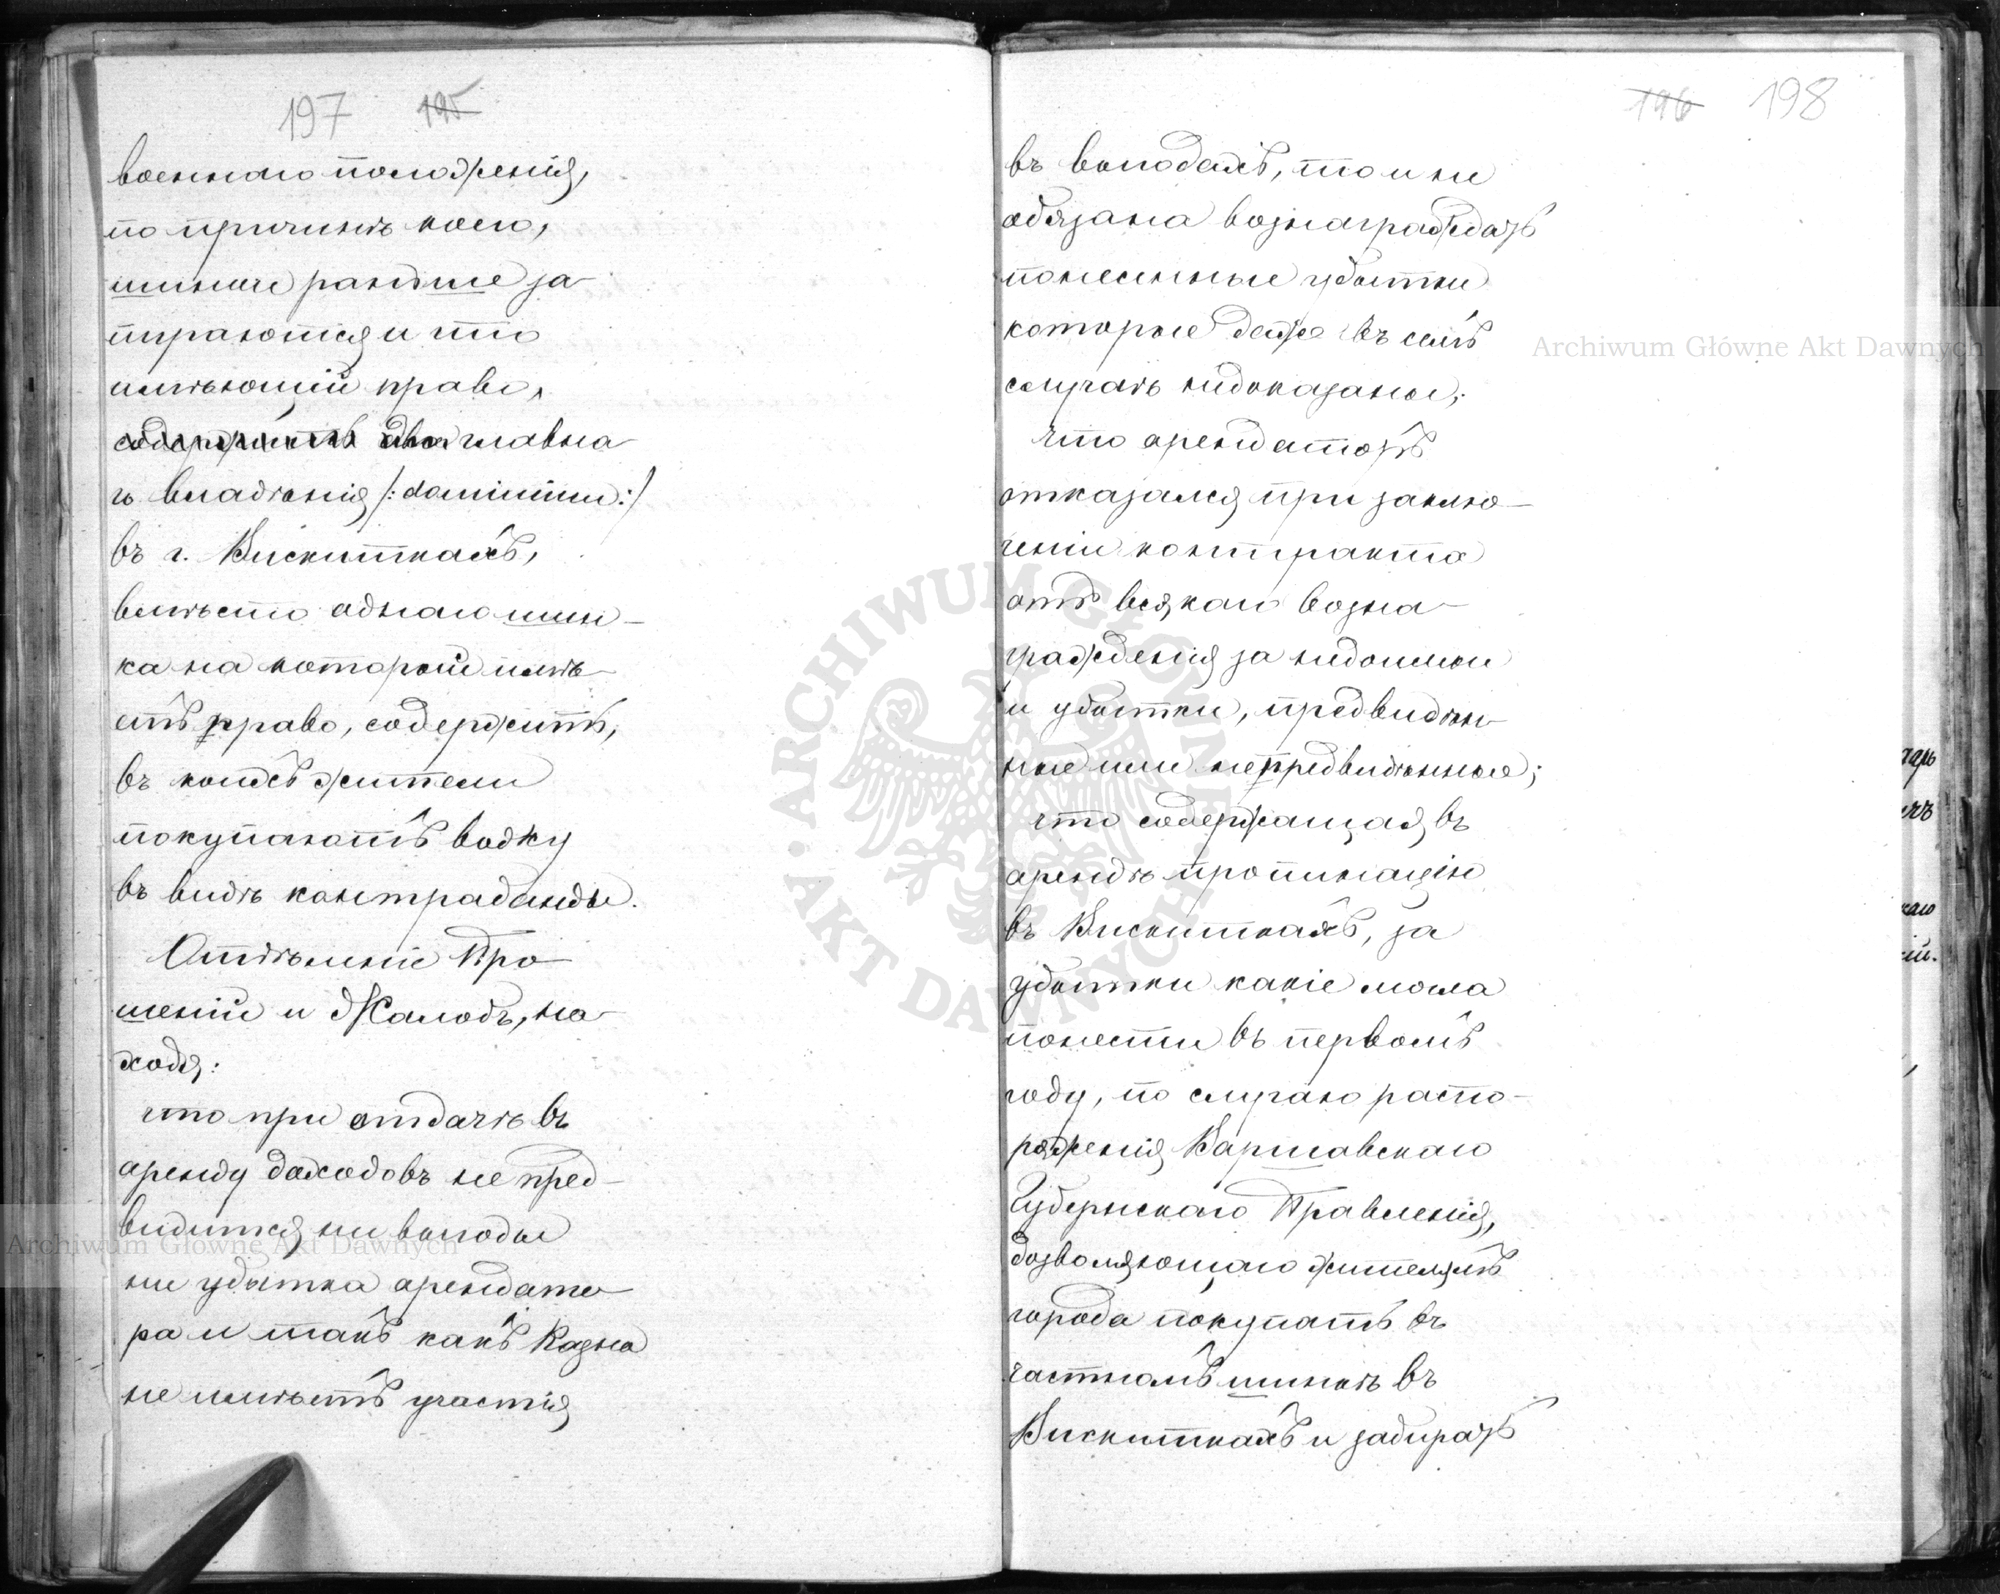 197 195
военнаго положенія,
по причинѣ коего,
шинки раньше за
пираются и что
имѣющій право,
главна
го владѣнія /:dominium:/
въ г. Вискиткахъ,
вмѣсто однаго шин-
ка на который имѣ-
етъ право, содержитъ,
въ коихъ жители
покупаютъ водку
въ видѣ контрабанды.
Отдѣленіе Про-
шеній и Жалобъ, на-
ходя:
что при отдачѣ въ
аренду доходовъ не пред-
видится ни выгоды
ни убытка арендато-
ра и такъ какъ Казна
не имѣетъ участія
196 198
въ выгодахъ, то и не
обязана вознаграждать
понесенные убытки
которые даже въ семъ
случаѣ недоказаны;
что арендаторъ
отказался при заклю-
ченіи контракта
отъ всякаго возна-
гражденія за недоимки
и убытки, предвидѣн-
ные или непредвидѣнные;
что содержащая въ
арендѣ пропинацію
въ Вискиткахъ, за
убытки какіе могла
понести въ первомъ
году, по случаю распо-
ряженія Варшавскаго
Губернскаго Правленія,
дозволяющаго жителямъ
города покупать въ
частномъ шинкѣ въ
Вискиткахъ и забирать
Archiwum Główne Akt Dawnych
Archiwum Główne Akt Dawnych
ARCHIWUM GŁÓWNE AKT DAWNYCH